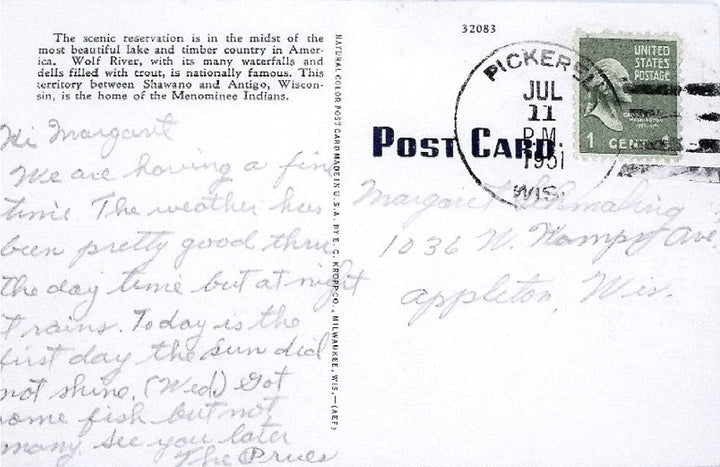 The scenic reservation is in the midst of the
most beautiful lake and timber country in Amer-
ica. Wolf River, with its many waterfalls and
dells filled with trout, is nationally famous. This
territory between Shawano and Antigo, Wiscon-
sin, is the home of the Menominee Indians.
Hi Margaret
We are having a fine
time The weather has
been pretty good thru
the day time but at night
it rains. Today is the
first day the sun did
not shine. (Wed.) Got
some fish but not
many see you later
The Prues
NATURAL COLOR POST CARD MADE IN U.S.A. BY E. C. KROPP CO., MILWAUKEE, WIS.—(AEF)
32083
POST CARD
PICKEREL
JUL
11
P.M.
1951
WIS.
UNITED
STATES
POSTAGE
1 CENT 1
Margaret
1036 W. Ave
Appleton, Wis.